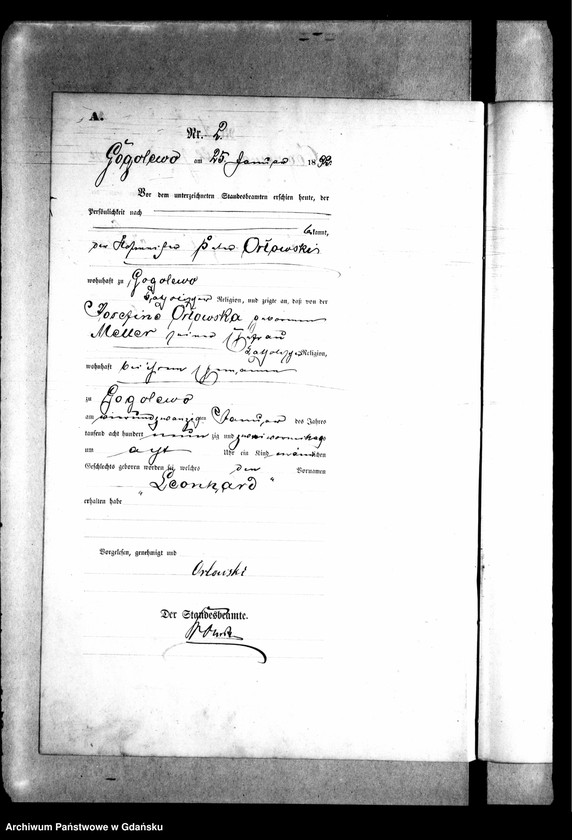 A.
Nr. 2.
Gogolewo am 25 Januar 1892.
Vor dem unterzeichneten Standesbeamten erschien heute, der
Persönlichkeit nach
bekannt,
der Peter Orłowski
wohnhaft zu Gogolewo
katholischer Religion, und zeigte an, daß von der
Josefine Orłowska geborenen
Meller seiner Ehefrau
katholischer Religion,
wohnhaft bei ihrem Ehemanne
zu Gogolewo
am vierundzwanzigsten Januar des Jahres
tausend acht hundert neun zig und zwei vormittags
um acht Uhr ein Kind männlichen
Geschlechts geboren worden sei, welches den Vornamen
„Leonhard"
erhalten habe
Vorgelesen, genehmigt und
Orlowski
Der Standesbeamte.
Archiwum Państwowe w Gdańsku